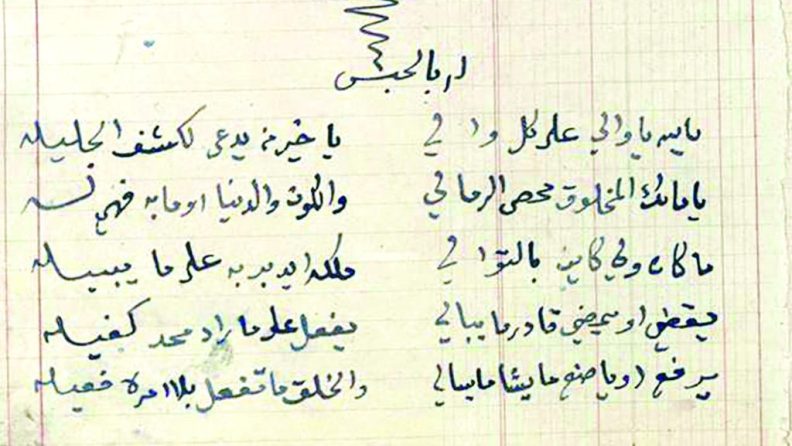 يالله يا والي على كل والي يا خير من يدعى لكشف الجليله
يا مالك المخلوق محصي الرمالي والكون والدنيا او ما به
ما كان ولي كاين بالتوالي ملكه ايدبر به على ما يبيله
يقضي او يمضي قادر ما يبالي يفعل على ما راد محد كفيله
يرفع او يا ضع ما يشا ما يبالي والخلق ما تفعل بلا امره فعيله